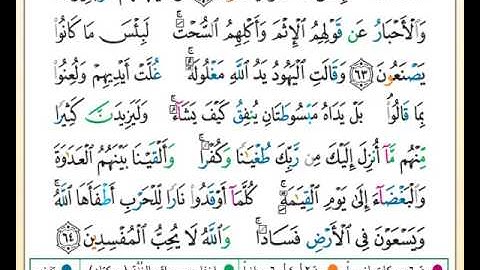 وَالْأَحْبَارُ عَن قَوْلِهِمُ الْإِثْمَ وَأَكْلِهِمُ السُّحْتَ ۚ لَبِئْسَ مَا كَانُوا
يَصْنَعُونَ ﴿٦٣﴾ وَقَالَتِ الْيَهُودُ يَدُ اللَّهِ مَغْلُولَةٌ ۚ غُلَّتْ أَيْدِيهِمْ وَلُعِنُوا
بِمَا قَالُوا ۘ بَلْ يَدَاهُ مَبْسُوطَتَانِ يُنفِقُ كَيْفَ يَشَاءُ ۚ وَلَيَزِيدَنَّ كَثِيرًا
مِّنْهُم مَّا أُنزِلَ إِلَيْكَ مِن رَّبِّكَ طُغْيَانًا وَكُفْرًا ۚ وَأَلْقَيْنَا بَيْنَهُمُ الْعَدَاوَةَ
وَالْبَغْضَاءَ إِلَىٰ يَوْمِ الْقِيَامَةِ ۚ كُلَّمَا أَوْقَدُوا نَارًا لِّلْحَرْبِ أَطْفَأَهَا اللَّهُ ۚ
وَيَسْعَوْنَ فِي الْأَرْضِ فَسَادًا ۚ وَاللَّهُ لَا يُحِبُّ الْمُفْسِدِينَ ﴿٦٤﴾